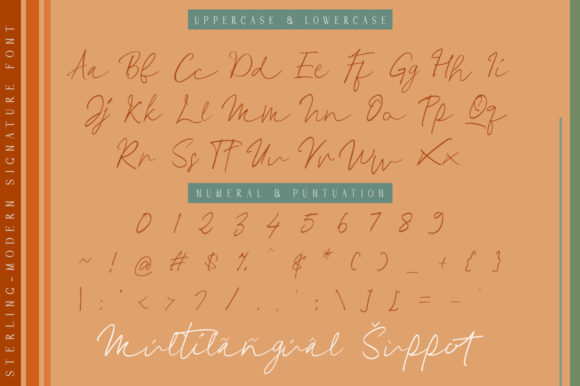 STERLING-MODERN SIGNATURE FONT
UPPERCASE & LOWERCASE
Aa Bb Cc Dd Ee Ff Gg Hh Ii
Jj Kk Ll Mm Nn Oo Pp Qq
Rr Ss Tt Uu Vv Ww Xx
NUMERAL & PUNTUATION
0 1 2 3 4 5 6 7 8 9
~ ! @ # $ % ^ & * ( ) _ + { }
| : " < > ? / . , ' ; \ ] [ = - `
Múltilãñgúâl Šùppot